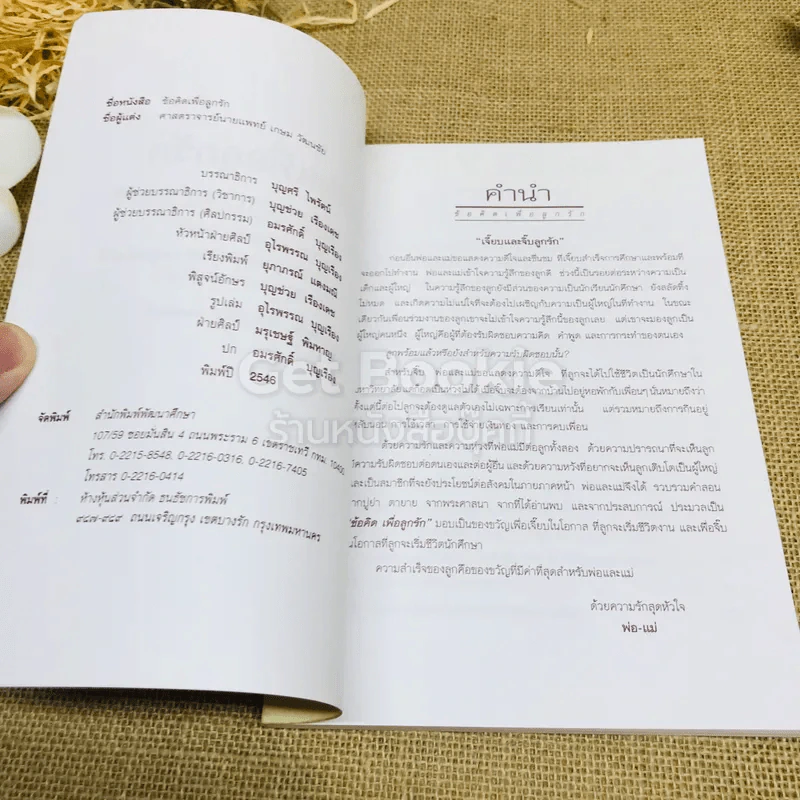 ชื่อหนังสือ ข้อคิดเพื่อลูกรัก
ชื่อผู้แต่ง ศาสตราจารย์นายแพทย์ เกษม วัฒนชัย
บรรณาธิการ บุญศรี ไพรัตน์
ผู้ช่วยบรรณาธิการ (วิชาการ) บุญช่วย เรืองเดช
ผู้ช่วยบรรณาธิการ (ศิลปกรรม) อมรศักดิ์ บุญเรือง
หัวหน้าฝ่ายศิลป์ อุไรพรรณ บุญเรือง
เรียงพิมพ์ ยุภาภรณ์ แดงมณี
พิสูจน์อักษร บุญช่วย เรืองเดช
รูปเล่ม อุไรพรรณ บุญเรือง
ฝ่ายศิลป์ มรุเชษฐ์ พิมหาญ
ปก อมรศักดิ์ บุญเรือง
พิมพ์ปี 2546
จัดพิมพ์ สำนักพิมพ์พัฒนาศึกษา
107/59 ซอยมันสิน 4 ถนนพระราม 6 เขตราชเทวี กทม. 10400
โทร. 0-2215-8548, 0-2216-0316, 0-2216-7405
โทรสาร 0-2216-0414
พิมพ์ที่ : ห้างหุ้นส่วนจำกัด ธนธัชการพิมพ์
๔๘๗-๔๘๙ ถนนเจริญกรุง เขตบางรัก กรุงเทพมหานคร
คำนำ
ข้อคิดเพื่อลูกรัก
"เจี๊ยบและจิ๊บลูกรัก"
ก่อนอื่นพ่อและแม่ขอแสดงความดีใจและชื่นชม ที่เจี๊ยบสำเร็จการศึกษาและพร้อมที่
จะออกไปทำงาน พ่อและแม่เข้าใจความรู้สึกของลูกดี ช่วงนี้เป็นรอยต่อระหว่างความเป็น
เด็กและผู้ใหญ่ ในความรู้สึกของลูกยังมีส่วนของความเป็นนักเรียนนักศึกษา ยังสลัดทิ้ง
ไม่หมด และเกิดความไม่แน่ใจที่จะต้องไปเผชิญกับความเป็นผู้ใหญ่ในที่ทำงาน ในขณะ
เดียวกันเพื่อนร่วมงานของลูกเขาจะไม่เข้าใจความรู้สึกนี้ของลูกเลย แต่เขาจะมองลูกเป็น
ผู้ใหญ่คนหนึ่ง ผู้ใหญ่คือผู้ที่ต้องรับผิดชอบความคิด คำพูด และการกระทำของตนเอง
ลูกพร้อมแล้วหรือยังสำหรับความรับผิดชอบนั้น?
สำหรับจิ๊บ พ่อและแม่ขอแสดงความดีใจ ที่ลูกจะได้ไปใช้ชีวิตเป็นนักศึกษาใน
มหาวิทยาลัยแต่ก็อดเป็นห่วงไม่ได้ เมื่อจิ๊บจะต้องจากบ้านไปอยู่หอพักกับเพื่อนๆ นั่นหมายถึงว่า
ตั้งแต่นี้ต่อไปลูกจะต้องดูแลตัวเองไม่เฉพาะการเรียนเท่านั้น แต่รวมหมายถึงการกินอยู่
หลับนอน การใช้เวลา การใช้จ่ายเงินทอง และการคบเพื่อน
ด้วยความรักและความหวังที่พ่อแม่มีต่อลูกทั้งสอง ด้วยความปรารถนาที่จะเห็นลูก
มีความรับผิดชอบต่อตนเองและต่อผู้อื่น และด้วยความหวังที่อยากจะเห็นลูกเติบโตเป็นผู้ใหญ่
และเป็นสมาชิกที่จะยังประโยชน์ต่อสังคมในภายภาคหน้า พ่อและแม่จึงได้ รวบรวมคำสอน
จากปู่ย่า ตายาย จากพระศาสนา จากที่ได้อ่านพบ และจากประสบการณ์ ประมวลเป็น
"ข้อคิด เพื่อลูกรัก" มอบเป็นของขวัญเพื่อเจี๊ยบในโอกาส ที่ลูกจะเริ่มชีวิตงาน และเพื่อจิ๊บ
ในโอกาสที่ลูกจะเริ่มชีวิตนักศึกษา
ความสำเร็จของลูกคือของขวัญที่มีค่าที่สุดสำหรับพ่อและแม่
ด้วยความรักสุดหัวใจ
พ่อ-แม่
Get Bookie
ร้านหนังสือบุ๊คกี้